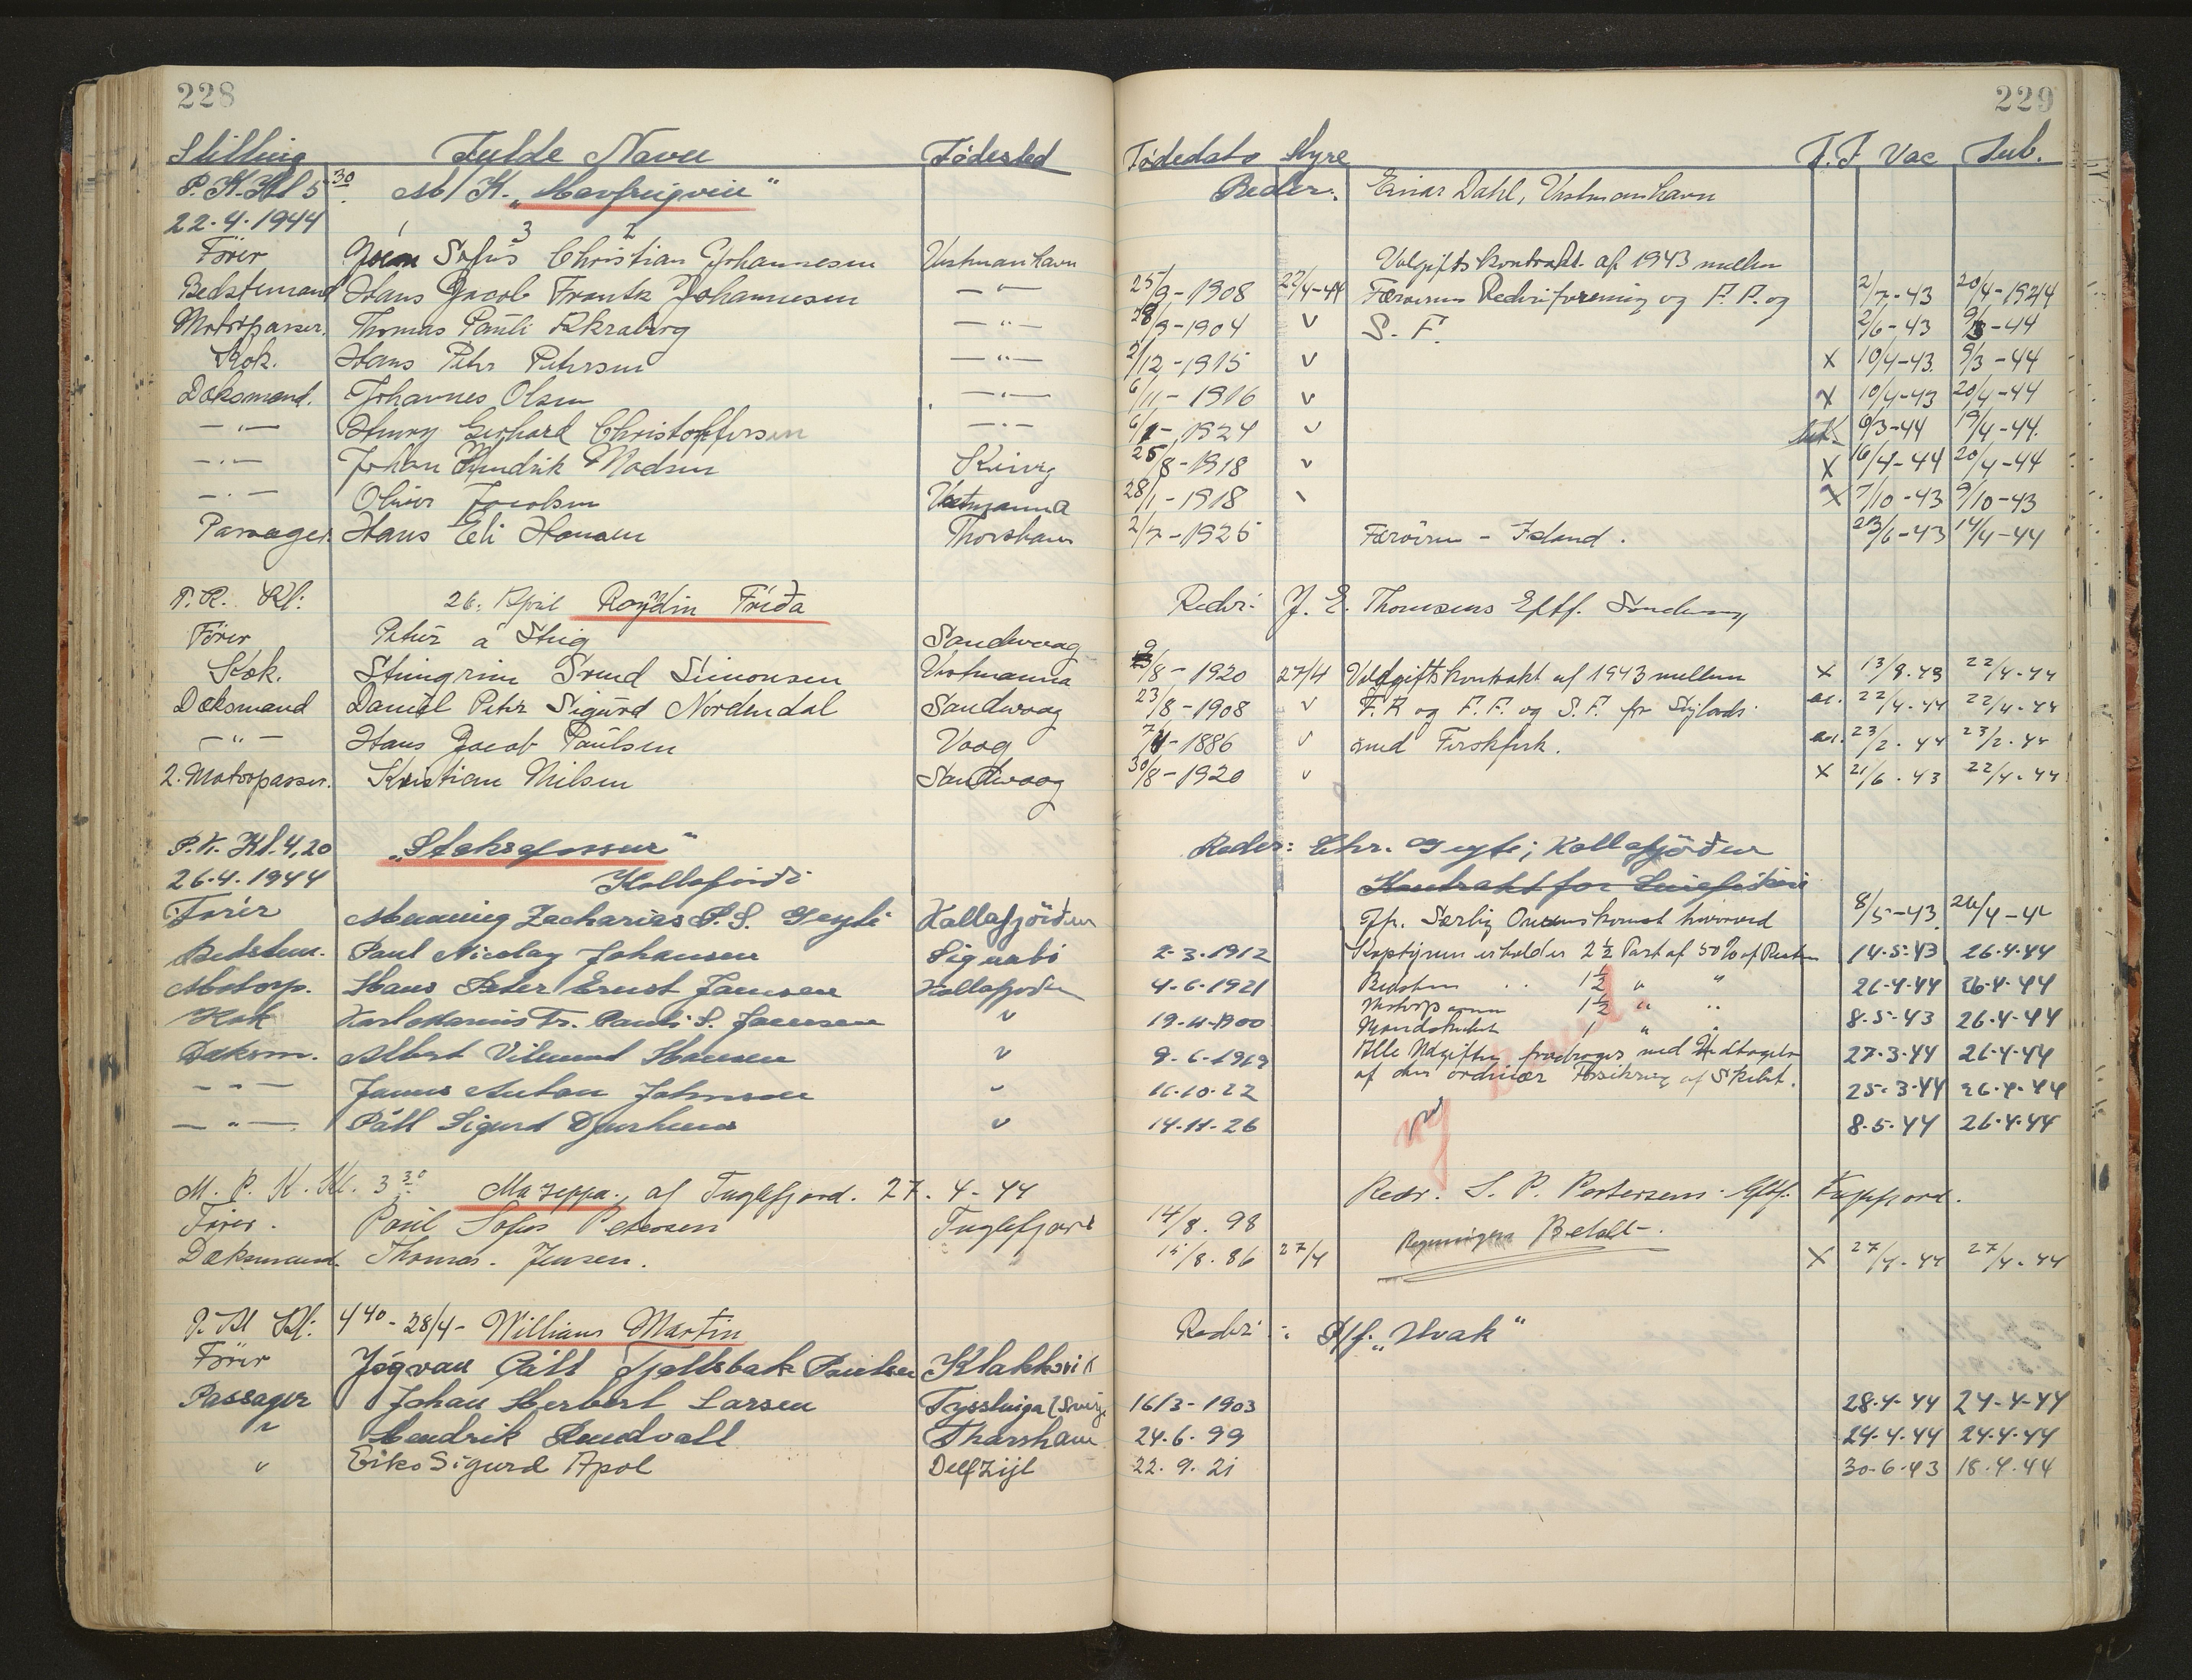 228
Stilling Fulde Navn Fødested
P. K. Kl 5 30 M/K. „Havfrúgvin“
22-4-1944 1 3 2
Förer Jóan Sofus Christian Johannesen Vestmanhavn
Bedstemand Hans Jacob Frantz Johannesen — " —
Motorpasser. Thomas Pauli Akraberg — " —
Kok. Hans Peter Petersen — " —
Dæksmand. Johannes Olsen — " —
— " — Henry Gerhard Christoffersen — " —
— " — Johan Hendrik Madsen Kvivig
— " — Oliver Jacobsen Vestmanna
Passager. Hans Eli Hansen Thorshavn
P. K. Kl: 26. April Royðin Fríða
Förer Petur á Steig Sandvaag
Kok. Steingrim Svend Simonsen Vestmanna
Dæksmand Daniel Peter Sigurd Nordendal Sandvaag
— " — Hans Jacob Paulsen Vaag
2. Motorpasser. Kristian Nilsen Sandvaag
P. K. Kl. 4,20
26-4-1944 Kollafirdi
Förer Henning Zacharias P. S. Geyti Kollafjörður
Bedstem. Paul Nicolay Johansen Signabö
Motorp. Hans Peter Ernst Jamsen Kollafjörður
Kok Karl Marius Fr. Pauli S. Joensen "
Dæksm. Albert Vilmund Hansen "
— " — Janus Anton Johnson "
— " — Páll Sigurd Djurhuus "
M. P. K. Kl. 3 30 Mazeppa. af Fuglefjord. 27. 4- 44
Förer. Poul Sofus Petersen Fuglefjord
Dæksmand. Thomas. Jensen. "
P. K Kl: 4 40 - 28/4 - Williams Martin
Förer Jógvan Páll Fjallsbak Poulsen Klakksvik
Passager Johan Herbert Larsen
" Hendrik Rundvall Thorshavn
" Eiko Sigurd Apol Delfzijl
229
Fødedato Hyre F.F Vac Sub.
Reder: Einar Dahl, Vestmanhavn
Valgiftskontrakt af 1943 mellem
25/9-1908 22/4-44 Færøernes Rederiforening og F. F. og 2/7-43 20/4-1944
28/9-1904 v S. F. 2/6-43 9/3-44
2/12-1915 v x 10/4-43. 9/3-44
6/11-1916 v x 10/4-43 20/4-44
6/1-1924 v 6/3-44 19/4-44.
25/8-1918 v x 16/4-44 20/4-44
28/1-1918 v x 7/10-43 9/10-43
2/7-1925 Færöerne - Island. 23/6-43 14/4-44
Reder: J. E. Thomsens Eftf. Sandvaag
9/8-1920 27/4 Valgiftskontrakt af 1943 mellem x 13/9.43 22/4-44
23/8-1908 v F. R og F. F. og S. F. for Sejlads ac. 22/4-44 22/4-44
7/4-1886 v med Ferskfisk. ac. 23/2-44 23/2-44
30/8-1920 v x 21/6-43 22/4-44
Reder: Chr. Geyti; Kollafjörður
Kontrakt for Liniefiskeri
Jfr. Særlig Overenskomst hvorved 8/5-43. 26/4-44
2-3-1912 Kaptajnen erholder 2 ½ Part af 50% af Resten 14-5-43 26-4-44
4-6-1921 Bedstem . . 1 ½ " " 26-4-44 26-4-44
19-11-1900 Motorpasser 1 ½ " " 8-5-43 26-4-44
9-6-1919 Mandskabet 1 " " 27-3-44 26-4-44
Alle Udgifter fradrages med Undtagelse
16-10-22 af den ordinær Forsikring af Skibet. 25-3-44 26-4-44
14-11-26 8-5-44 26-4-44
Reder. S. P. Petersens Eftf. Fuglefjord.
14/8. 98
15/8. 86 27/4 Betalt. x 27/4-44 27/4-44
Reder: P/f. „Hvak“
16/3-1903 28-4-44 24-4-44
24-6-99 24-4-44 24-4-44
22-9-21 30-6-43 18-4-44